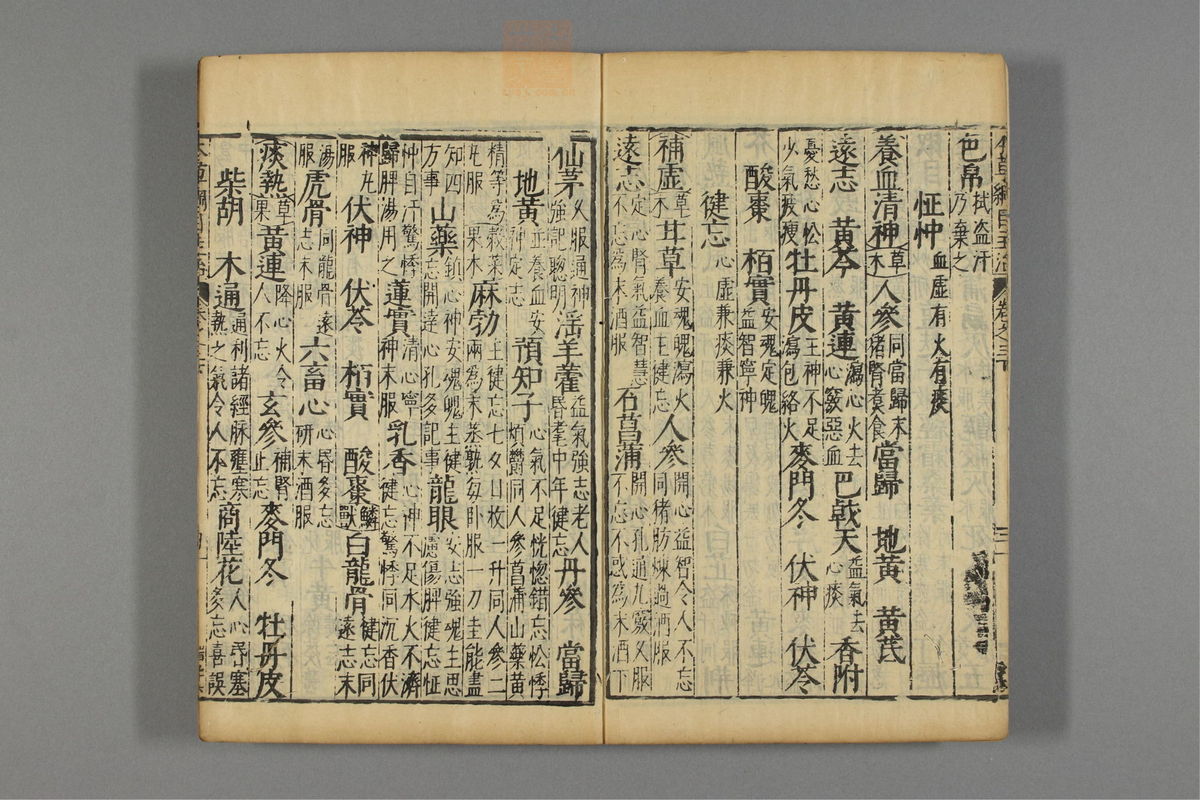 色帛拭盗汗乃棄之
怔忡血虛有火有痰
養血清神草木人參同當歸末猪腎煮食當歸 地黃 黃芪
遠志 黃芩 黃連瀉心火去心竅惡血巴戟天益氣去心痰香附
憂愁心忪少氣疲瘦牡丹皮主神不足瀉包絡火麥門冬 伏神 伏苓
酸棗 栢實安魂定魄益智寧神
健忘心虛兼痰兼火
補虛草木甘草安魂魄瀉火養血主健忘人參開心益智令人不忘同猪肪煉過酒服
遠志定心腎氣益智慧不忘為末酒服石菖蒲開心孔通九竅久服不忘不惑為末酒下
仙茅久服通神強記聰明淫羊藿益氣強志老人昏耄中年健忘丹參 當歸
地黃並養血安神定志預知子心氣不足恍惚錯忘忪悸煩鬱同人參菖蒲山藥黃
精等為丸服穀菜果木麻勃主健忘七夕日收一升同人參二兩為末蒸熟每卧服一刀圭能盡
知四方事山藥鎮心神安魂魄主健忘開達心孔多記事龍眼安志強魂主思慮傷脾健忘怔
忡自汗驚悸歸脾湯用之蓮實清心寧神末服乳香心神不足水火不濟健忘驚悸同沉香伏
神丸服伏神 伏苓 栢實 酸棗鱗獸白龍骨健忘同遠志末
湯服虎骨同龍骨遠志末服六畜心心昏多忘研末酒服
痰熱草果黃連降心火令人不忘玄參補腎止忘麥門冬 牡丹皮
柴胡 木通通利諸經脉壅塞熱之氣令人不忘商陸花人心昏塞多忘喜誤